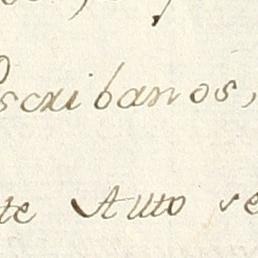 Escribanos,
te Auto se